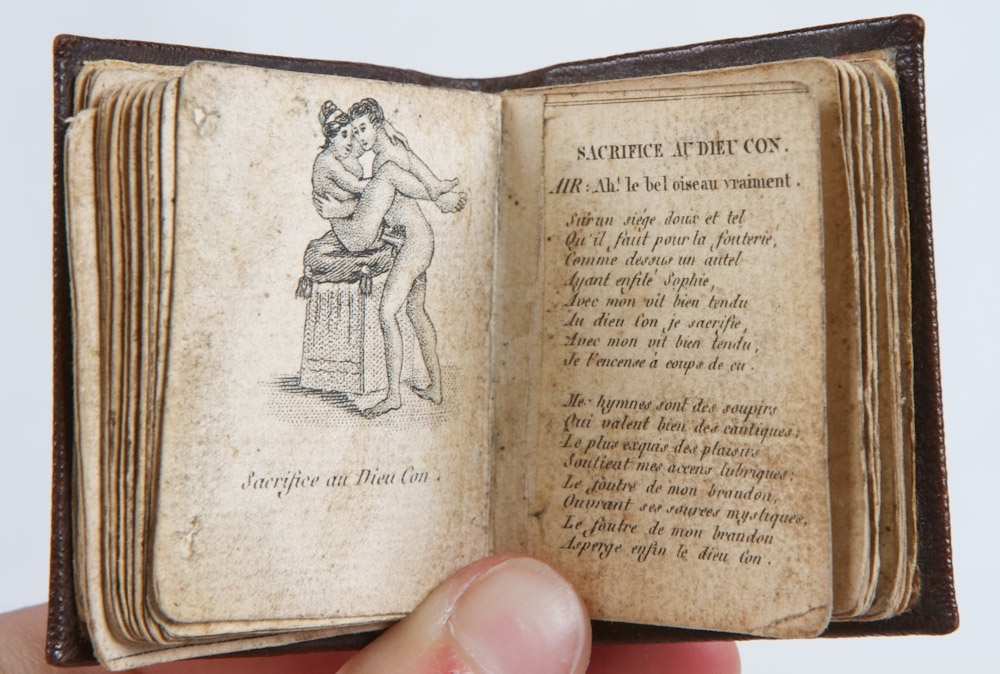 Sacrifice au Dieu Con.
SACRIFICE AU DIEU CON.
AIR: Ah! le bel oiseau vraiment.
Sur un siége doux et tel
Qu'il faut pour la fouterie,
Comme dessus un autel
Ayant enfilé Sophie,
Avec mon vit bien tendu
Au dieu Con je sacrifie,
Avec mon vit bien tendu,
Je l'encense à coups de cu.
Mes hymnes sont des soupirs
Qui valent bien des cantiques;
Le plus exquis des plaisirs
Soutient mes accens lubriques;
Le foutre de mon brandon,
Ouvrant ses sources mystiques,
Le foutre de mon brandon
Asperge enfin le dieu Con.